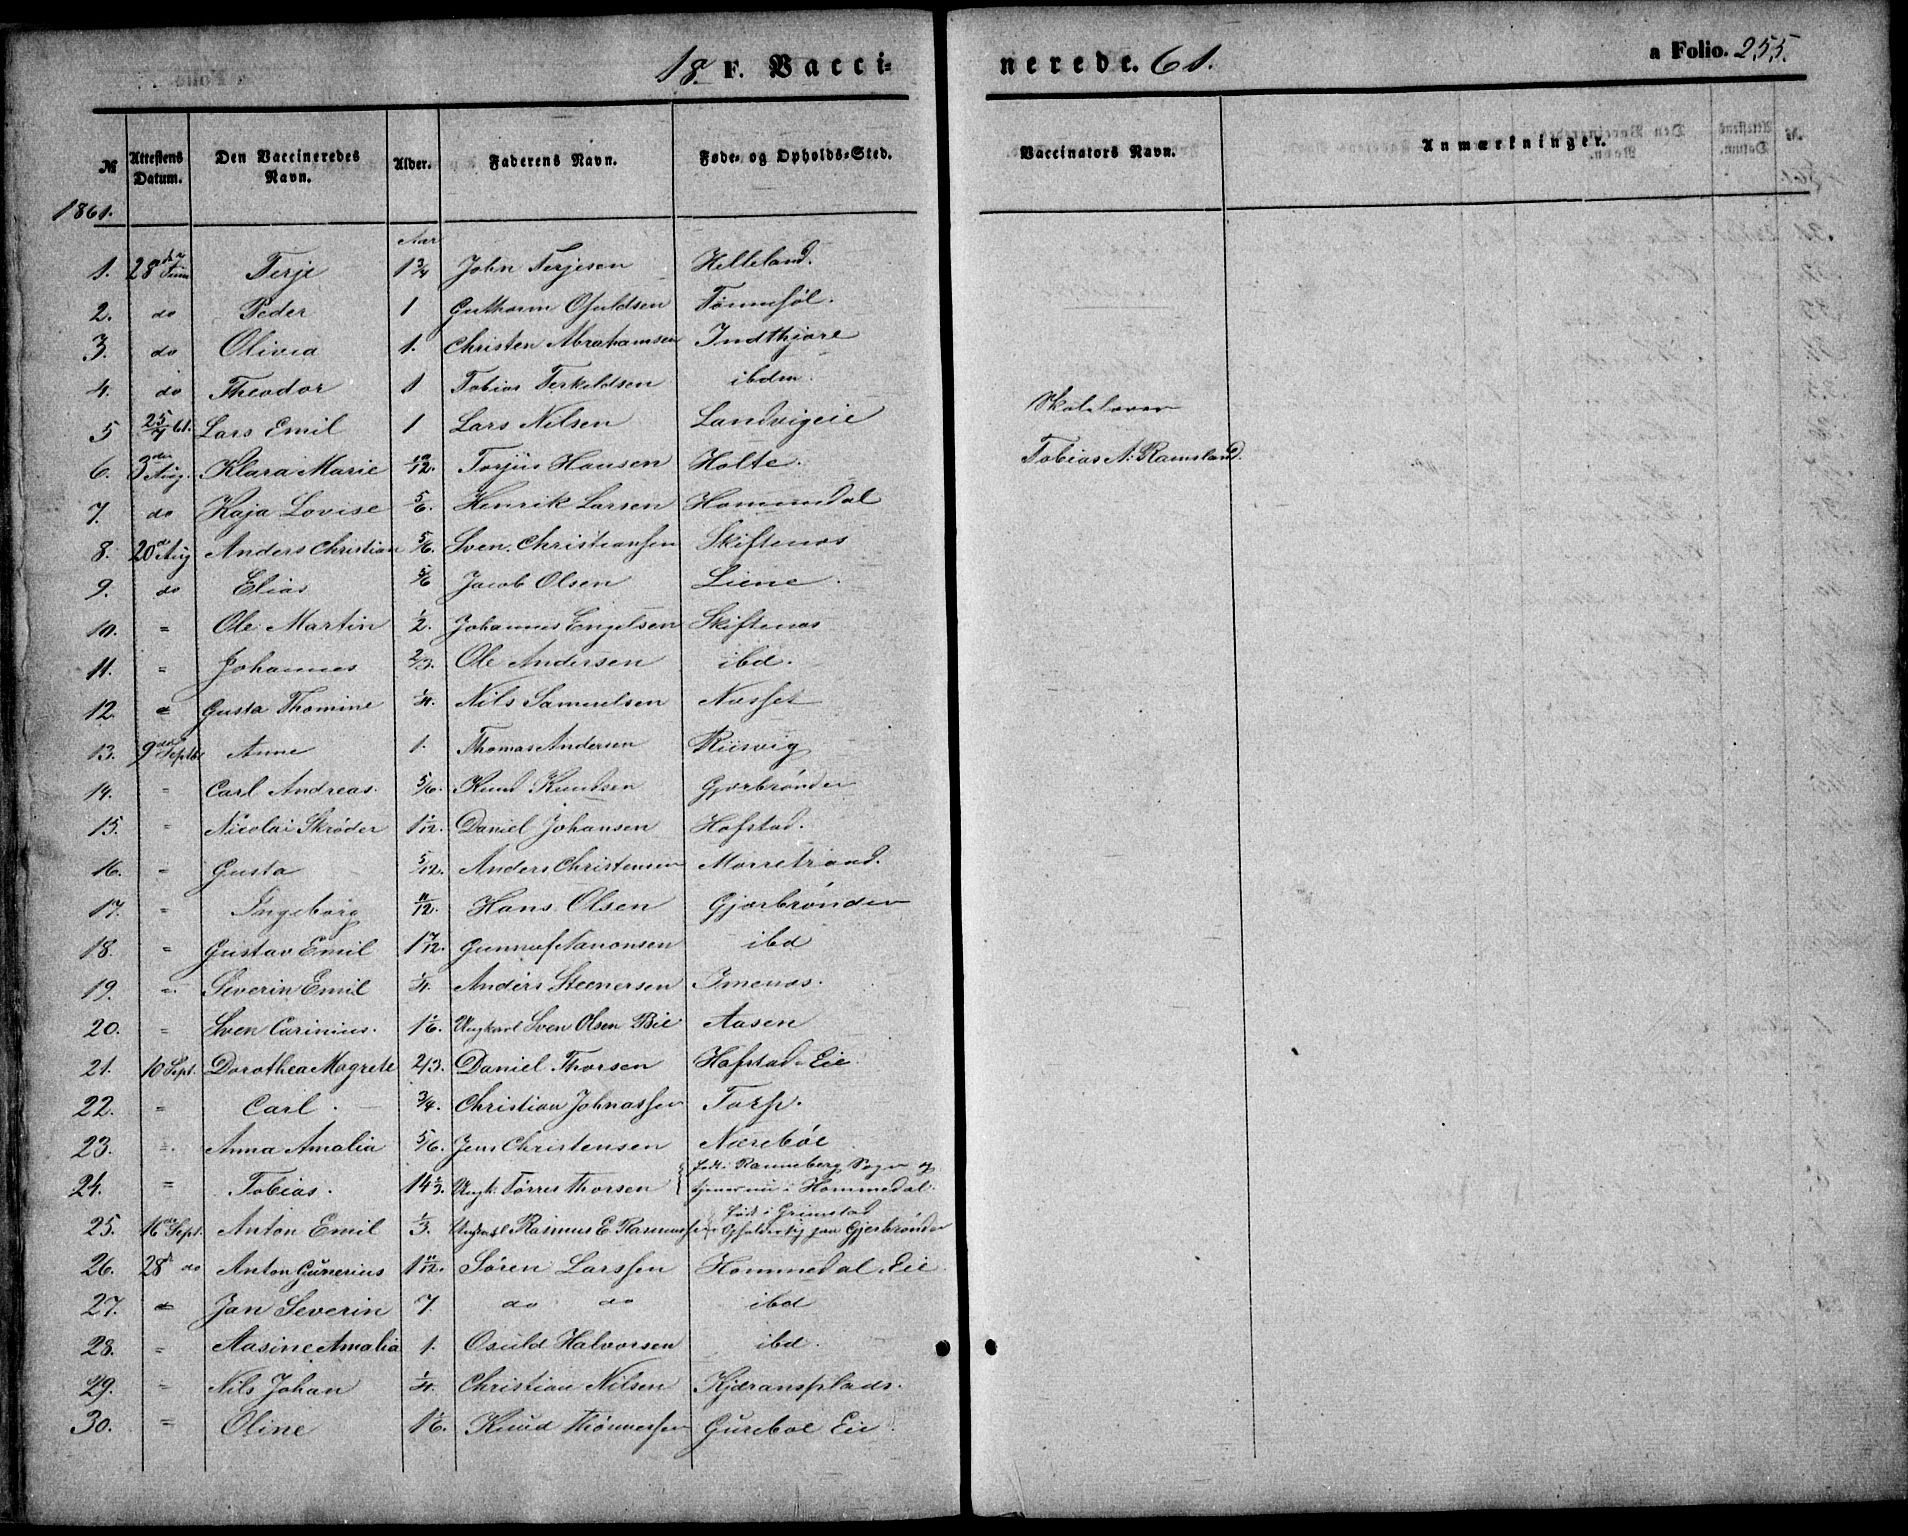 18 F. Vacci-
nerede. 61.
a Folio. 255.
№ Attestens Datum. Den Vaccineredes Navn. Alder. Faderens Navn. Føde- og Opholds-Sted. Vaccinators Navn. Anmærkninger.
1861.
Aar
1. 28de Juni Terje 1 3/4 John Terjesen Helleland.
2. do Peder 1 Guthorm Osuldsen Tønnesøl.
3. do Olivia 1. Christen Abrahamsen Indthjore
4. do Theodor 1 Tobias Terkeldsen ibdm.
5 25/7 61. Lars Emil 1 Lars Nilsen Landvigeie
Skolelærer
6. 3die Aug. Klara Marie 10/12. Torjus Hansen Holte.
Tobias A. Ramsland.
7. do Kaja Lovise 5/6. Henrik Larsen Hommedal
8. 20de Aug Anders Christian 5/6. Sven Christiansen Skiftenes
9. do Elias 5/6 Jacob Olsen Liene.
10. " Ole Martin 1/2. Johannes Engelsen Skiftenes
11. " Johannes 2/3. Ole Andersen ibd.
12. " Gusta Thomine 1/4. Nils Samuelsen Næsset
13. 9de Septbr Anne 1. Thomas Andersen Riisvig
14. " Carl Andreas. 5/6. Knud Knudsen Gjærbrønden
15. " Nicolai Skrøder 1 1/12. Daniel Johansen Hofstad.
16. " Gusta 5/12. Anders Christensen Morretraad.
17. " Ingeborg 11/12. Hans Olsen Gjærbrønden
18. " Gustav Emil 1 7/12. Gunnuf Aanonsen ibd
19. " Severin Emil 1/4. Anders Steenersen Imenæs.
20. " Sven Carinius. 1 1/6. Ungkarl Sven Olsen Bie Aasen
21. 10 Sept. Dorothea Magrete 2/3. Daniel Thorsen Hofstad Eie
22. " Carl. 3/4. Christian Johnassen Torp.
23. " Anna Amalia 5/6. Jens Christensen Nærebøe
24. " Tobias. 14 1/3. Ungk. Tørres Thorsen født i Ranneberg Sogn og
tjener nu i Hommedal.
25. 16de Sept. Anton Emil 1/3. Ungkarl Rasmus E. Rasmussen født i Grimstad
Opholder sig paa Gjærbrønden
26. 28 do Anton Gunerius 1 11/12. Søren Larssen Hommedal Eie
27. " Jan Severin 7. do do ibd
28. " Aasine Amalia 1. Osuld Halvorsen ibd.
29. " Nils Johan 1/4. Christian Nilsen Kjæransplads.
30. " Oline 1 1/6. Knud Thønnessen Gurebøe Eie